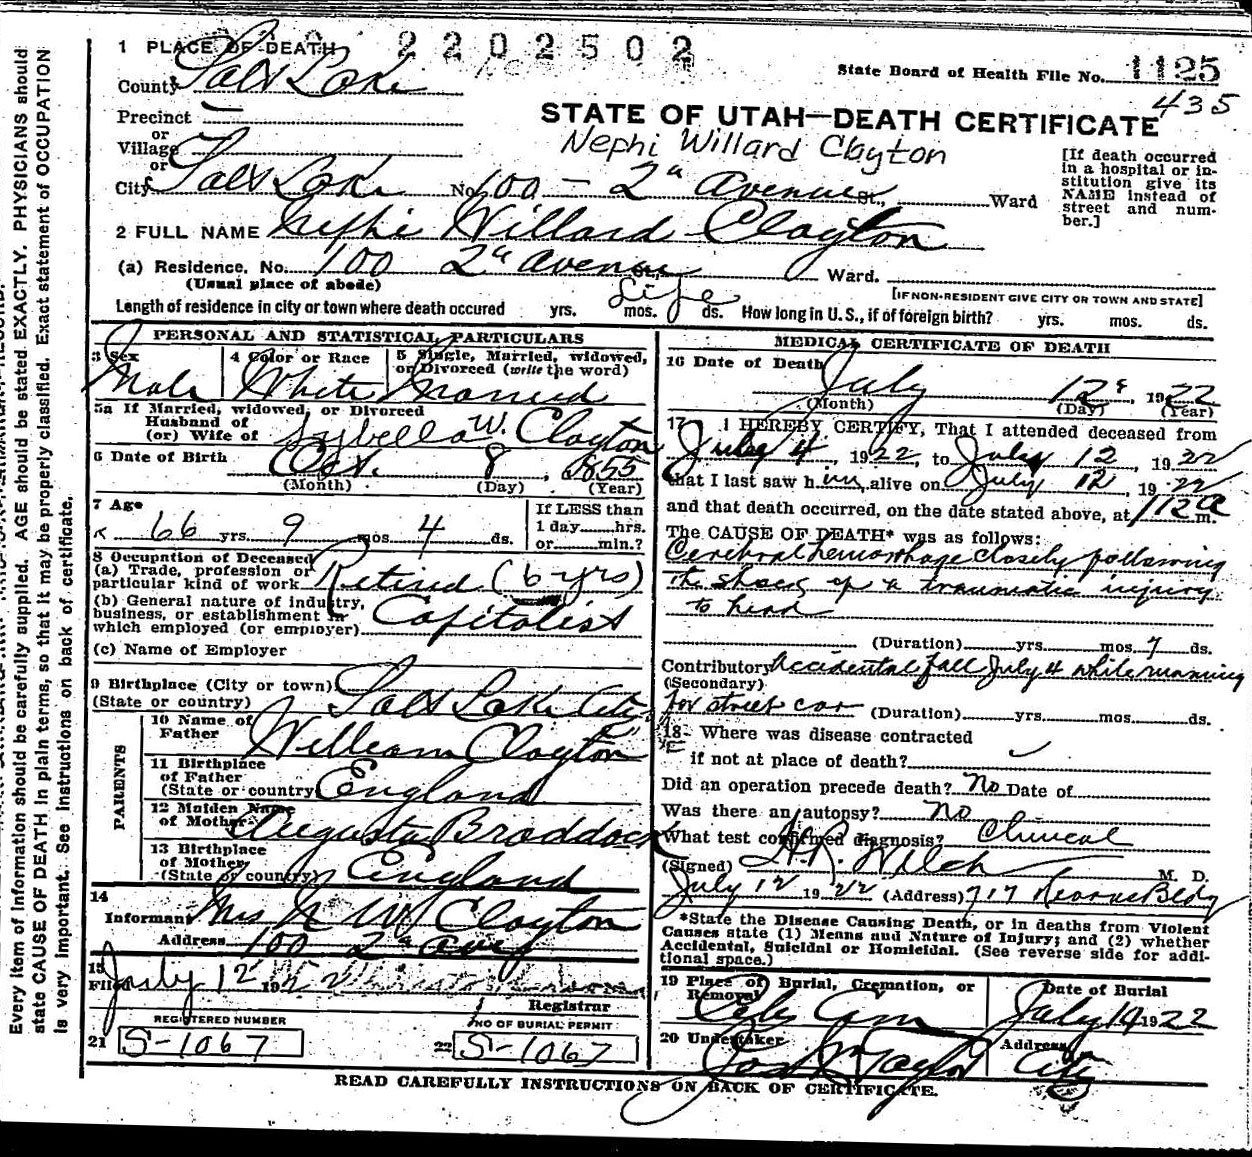 1 PLACE OF DEATH 2202502
County Salt Lake
State Board of Health File No. 1125
435
Precinct —
STATE OF UTAH—DEATH CERTIFICATE
or
Village
Nephi Willard Clayton
or
City Salt Lake No. 100 - 2d avenue St., Ward
[If death occurred
in a hospital or in-
stitution give its
NAME instead of
street and num-
ber.]
2 FULL NAME Nephi Willard Clayton
(a) Residence. No. 100 2d avenue St., Ward.
(Usual place of abode)
[IF NON-RESIDENT GIVE CITY OR TOWN AND STATE]
Length of residence in city or town where death occured yrs. mos. ds. Life How long in U.S., if of foreign birth? yrs. mos. ds.
PERSONAL AND STATISTICAL PARTICULARS
3 Sex
Male
4 Color or Race
White
5 Single, Married, widowed,
or Divorced (write the word)
Married
5a If Married, widowed, or Divorced
Husband of
(or) Wife of Sybella W. Clayton
6 Date of Birth Oct. 8 1855
(Month) (Day) (Year)
7 Age
66 yrs. 9 mos. 4 ds.
If LESS than
1 day......hrs.
or......min.?
8 Occupation of Deceased
(a) Trade, profession or
particular kind of work Retired (6 yrs)
(b) General nature of industry,
business, or establishment in
which employed (or employer) Capitalist
(c) Name of Employer
9 Birthplace (City or town)
(State or country) Salt Lake City
PARENTS
10 Name of
Father William Clayton
11 Birthplace
of Father
(State or country) England
12 Maiden Name
of Mother Augusta Braddock
13 Birthplace
of Mother
(State or country) England
14
Informant Mrs N W Clayton
Address 100 2d ave
15
Filed July 12 1922
Registrar
REGISTERED NUMBER
21 S-1067
NO OF BURIAL PERMIT
22 S-1067
MEDICAL CERTIFICATE OF DEATH
16 Date of Death July 12, 1922
(Month) (Day) (Year)
17 I HEREBY CERTIFY, That I attended deceased from
July 4, 1922, to July 12, 1922
that I last saw him alive on July 12, 1922
and that death occurred, on the date stated above, at 112 a m.
The CAUSE OF DEATH* was as follows:
Cerebral hemorrhage closely following
the shock of a traumatic injury
to head
(Duration) yrs. mos. 7 ds.
Contributory Accidental fall July 4 while running
(Secondary)
for street car (Duration) yrs. mos. ds.
18 Where was disease contracted
if not at place of death?
Did an operation precede death? No Date of
Was there an autopsy? No
What test confirmed diagnosis? Clinical
(Signed) Welch M. D.
July 12 1922 (Address) 717 Kearns Bldg
*State the Disease Causing Death, or in deaths from Violent
Causes state (1) Means and Nature of Injury; and (2) whether
Accidental, Suicidal or Homicidal. (See reverse side for addi-
tional space.)
19 Place of Burial, Cremation, or
Removal City Cem
Date of Burial
July 14 1922
20 Undertaker
Jos Wm Taylor
Address
City
READ CAREFULLY INSTRUCTIONS ON BACK OF CERTIFICATE.
Every item of information should be carefully supplied. AGE should be stated EXACTLY. PHYSICIANS should
state CAUSE OF DEATH in plain terms, so that it may be properly classified. Exact statement of OCCUPATION
is very important. See instructions on back of certificate.